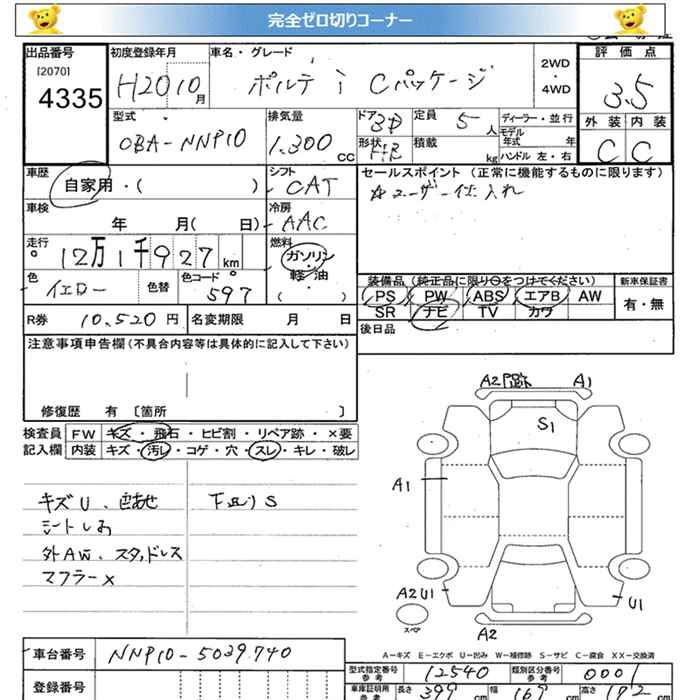 完全ゼロ切りコーナー
出品番号 初度登録年月 車名・グレード 2WD ・ 4WD 評価点
[2070]
4335 H20 10月 ポルテ i Cパッケージ 3.5
型式 排気量 ドア 3D 定員 5人 ディーラー・並行 外装 内装
CBA-NNP10 1,300 CC 形状 H/B 積載 kg モデル年式 年 ハンドル 左・右 C C
車歴 自家用・( ) シフト CAT セールスポイント (正常に機能するものに限ります)
☆ユーザー仕入れ
車検 年 月( 日) 冷房 AAC
走行 12万1千927km 燃料 ガソリン・軽油 ( )
装備品 (純正品に限り○をつけてください) 新車保証書
色 イエロー 色替 色コード 597
PS PW ABS エアB AW 有・無
SR ナビ TV カワ
R券 10,520円 名変期限 月 日 後日品
注意事項申告欄(不具合内容等は具体的に記入して下さい)
修復歴 有 〔箇所 〕
検査員 FW キズ・飛石・ヒビ割・リペア跡・×要
記入欄 内装 キズ・汚し・コゲ・穴・スレ・キレ・破レ
キズU、色あせ 下廻りS
シートしみ
外AW、スタッドレス
マフラー×
A2 A1
S1
A1
A2 U1 U1
スペア
A2
A-キズ E-エクボ U-凹み W-補修跡 S-サビ C-腐食 XX-交換済
車台番号 NNP10-5029740
型式指定番号 参考 12540 類別区分番号 参考 0001
登録番号 車庫証明用 参考 長さ 399 cm 幅 169 cm 高さ 172 cm